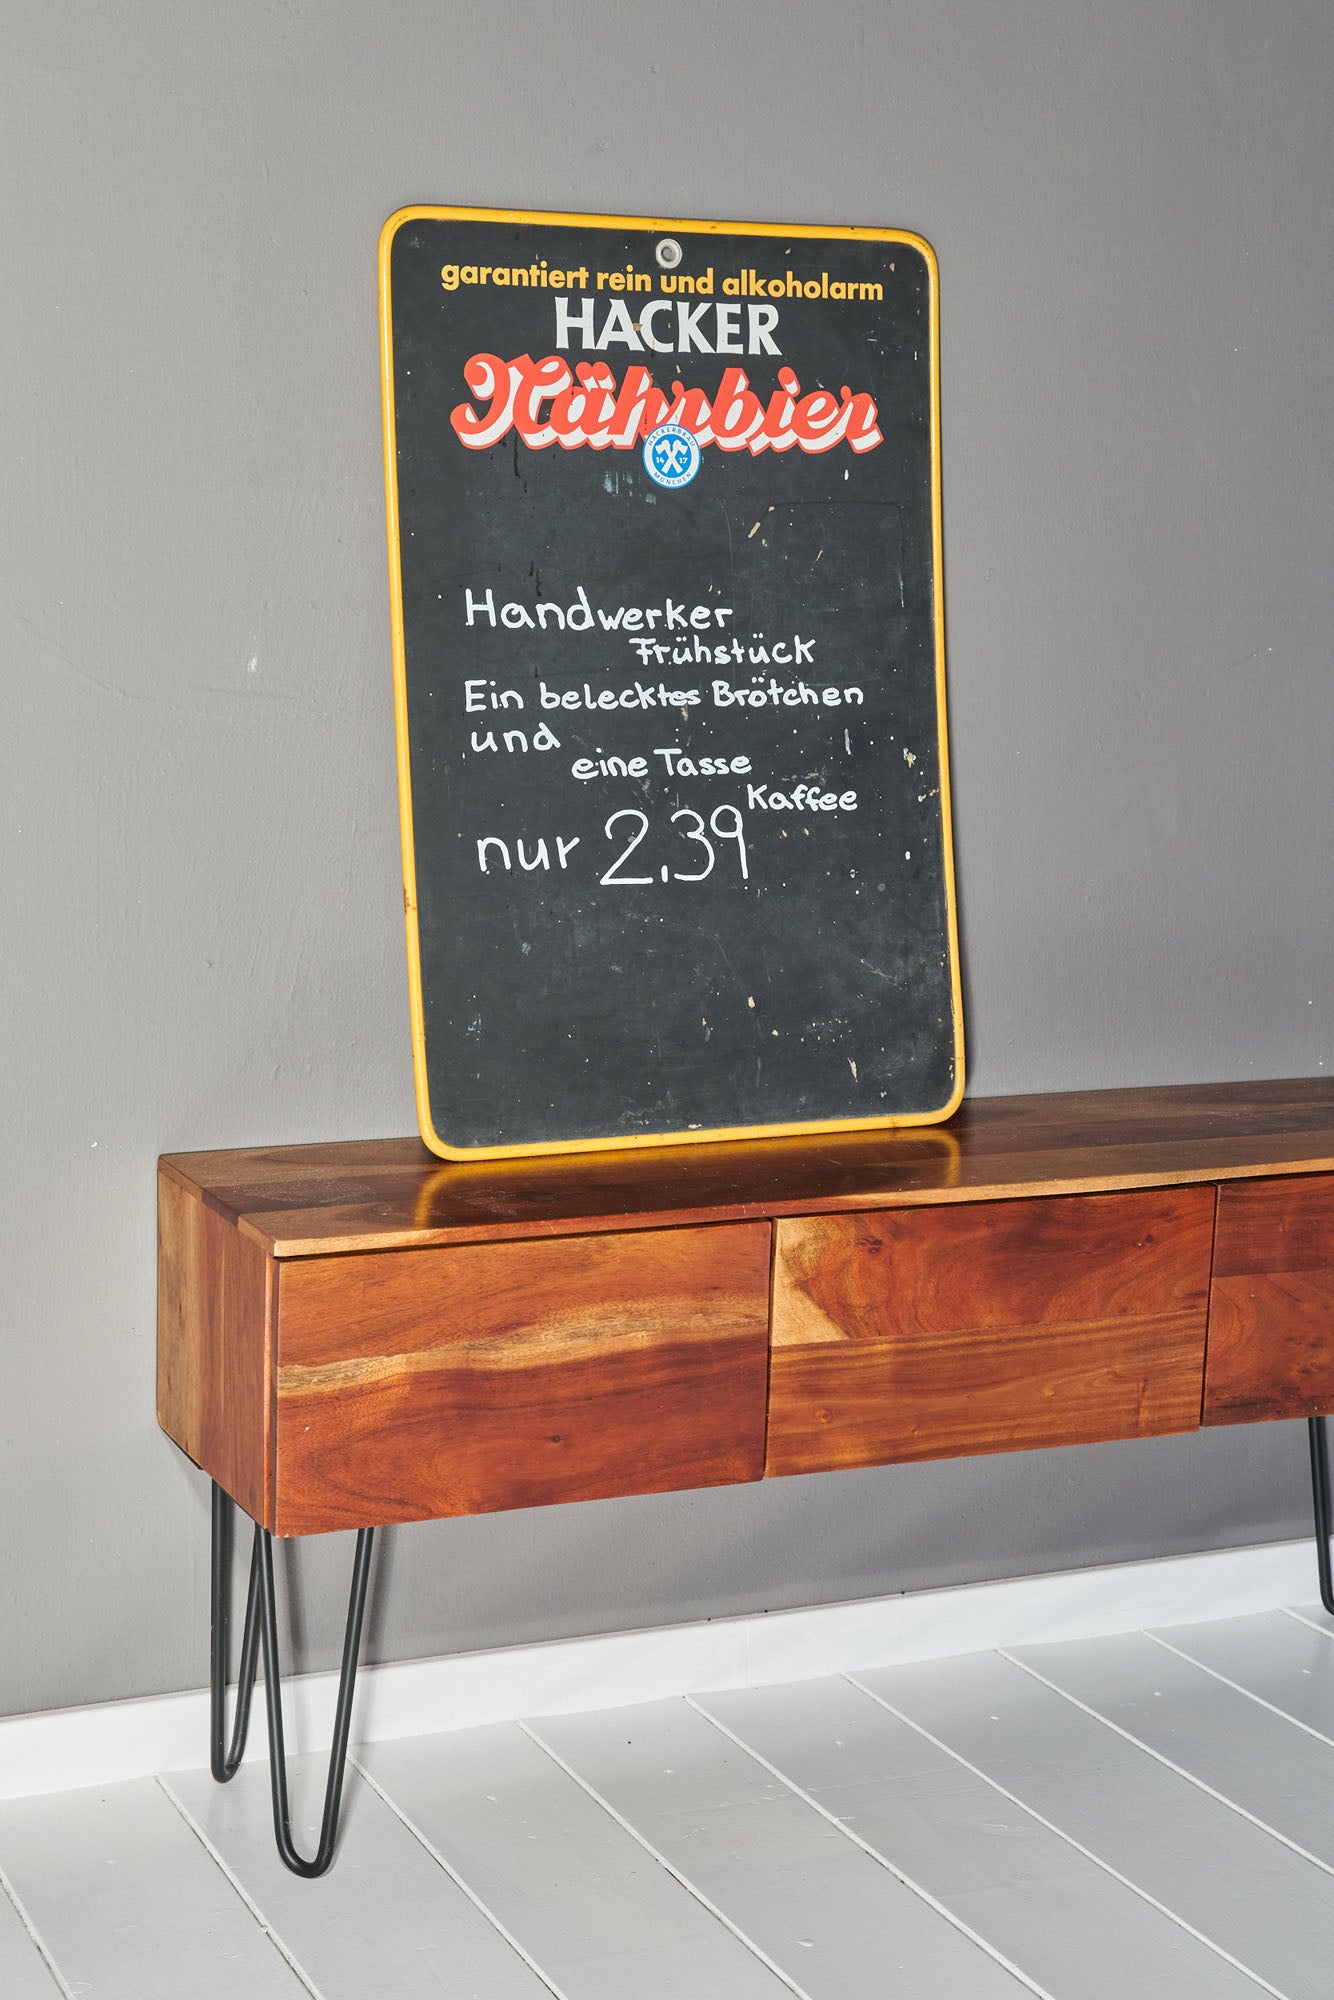 garantiert rein und alkoholarm
HACKER
Nährbier
HACKERBRÄU
14 17
MÜNCHEN
Handwerker
Frühstück
Ein belecktes Brötchen
und
eine Tasse
Kaffee
nur 2,39